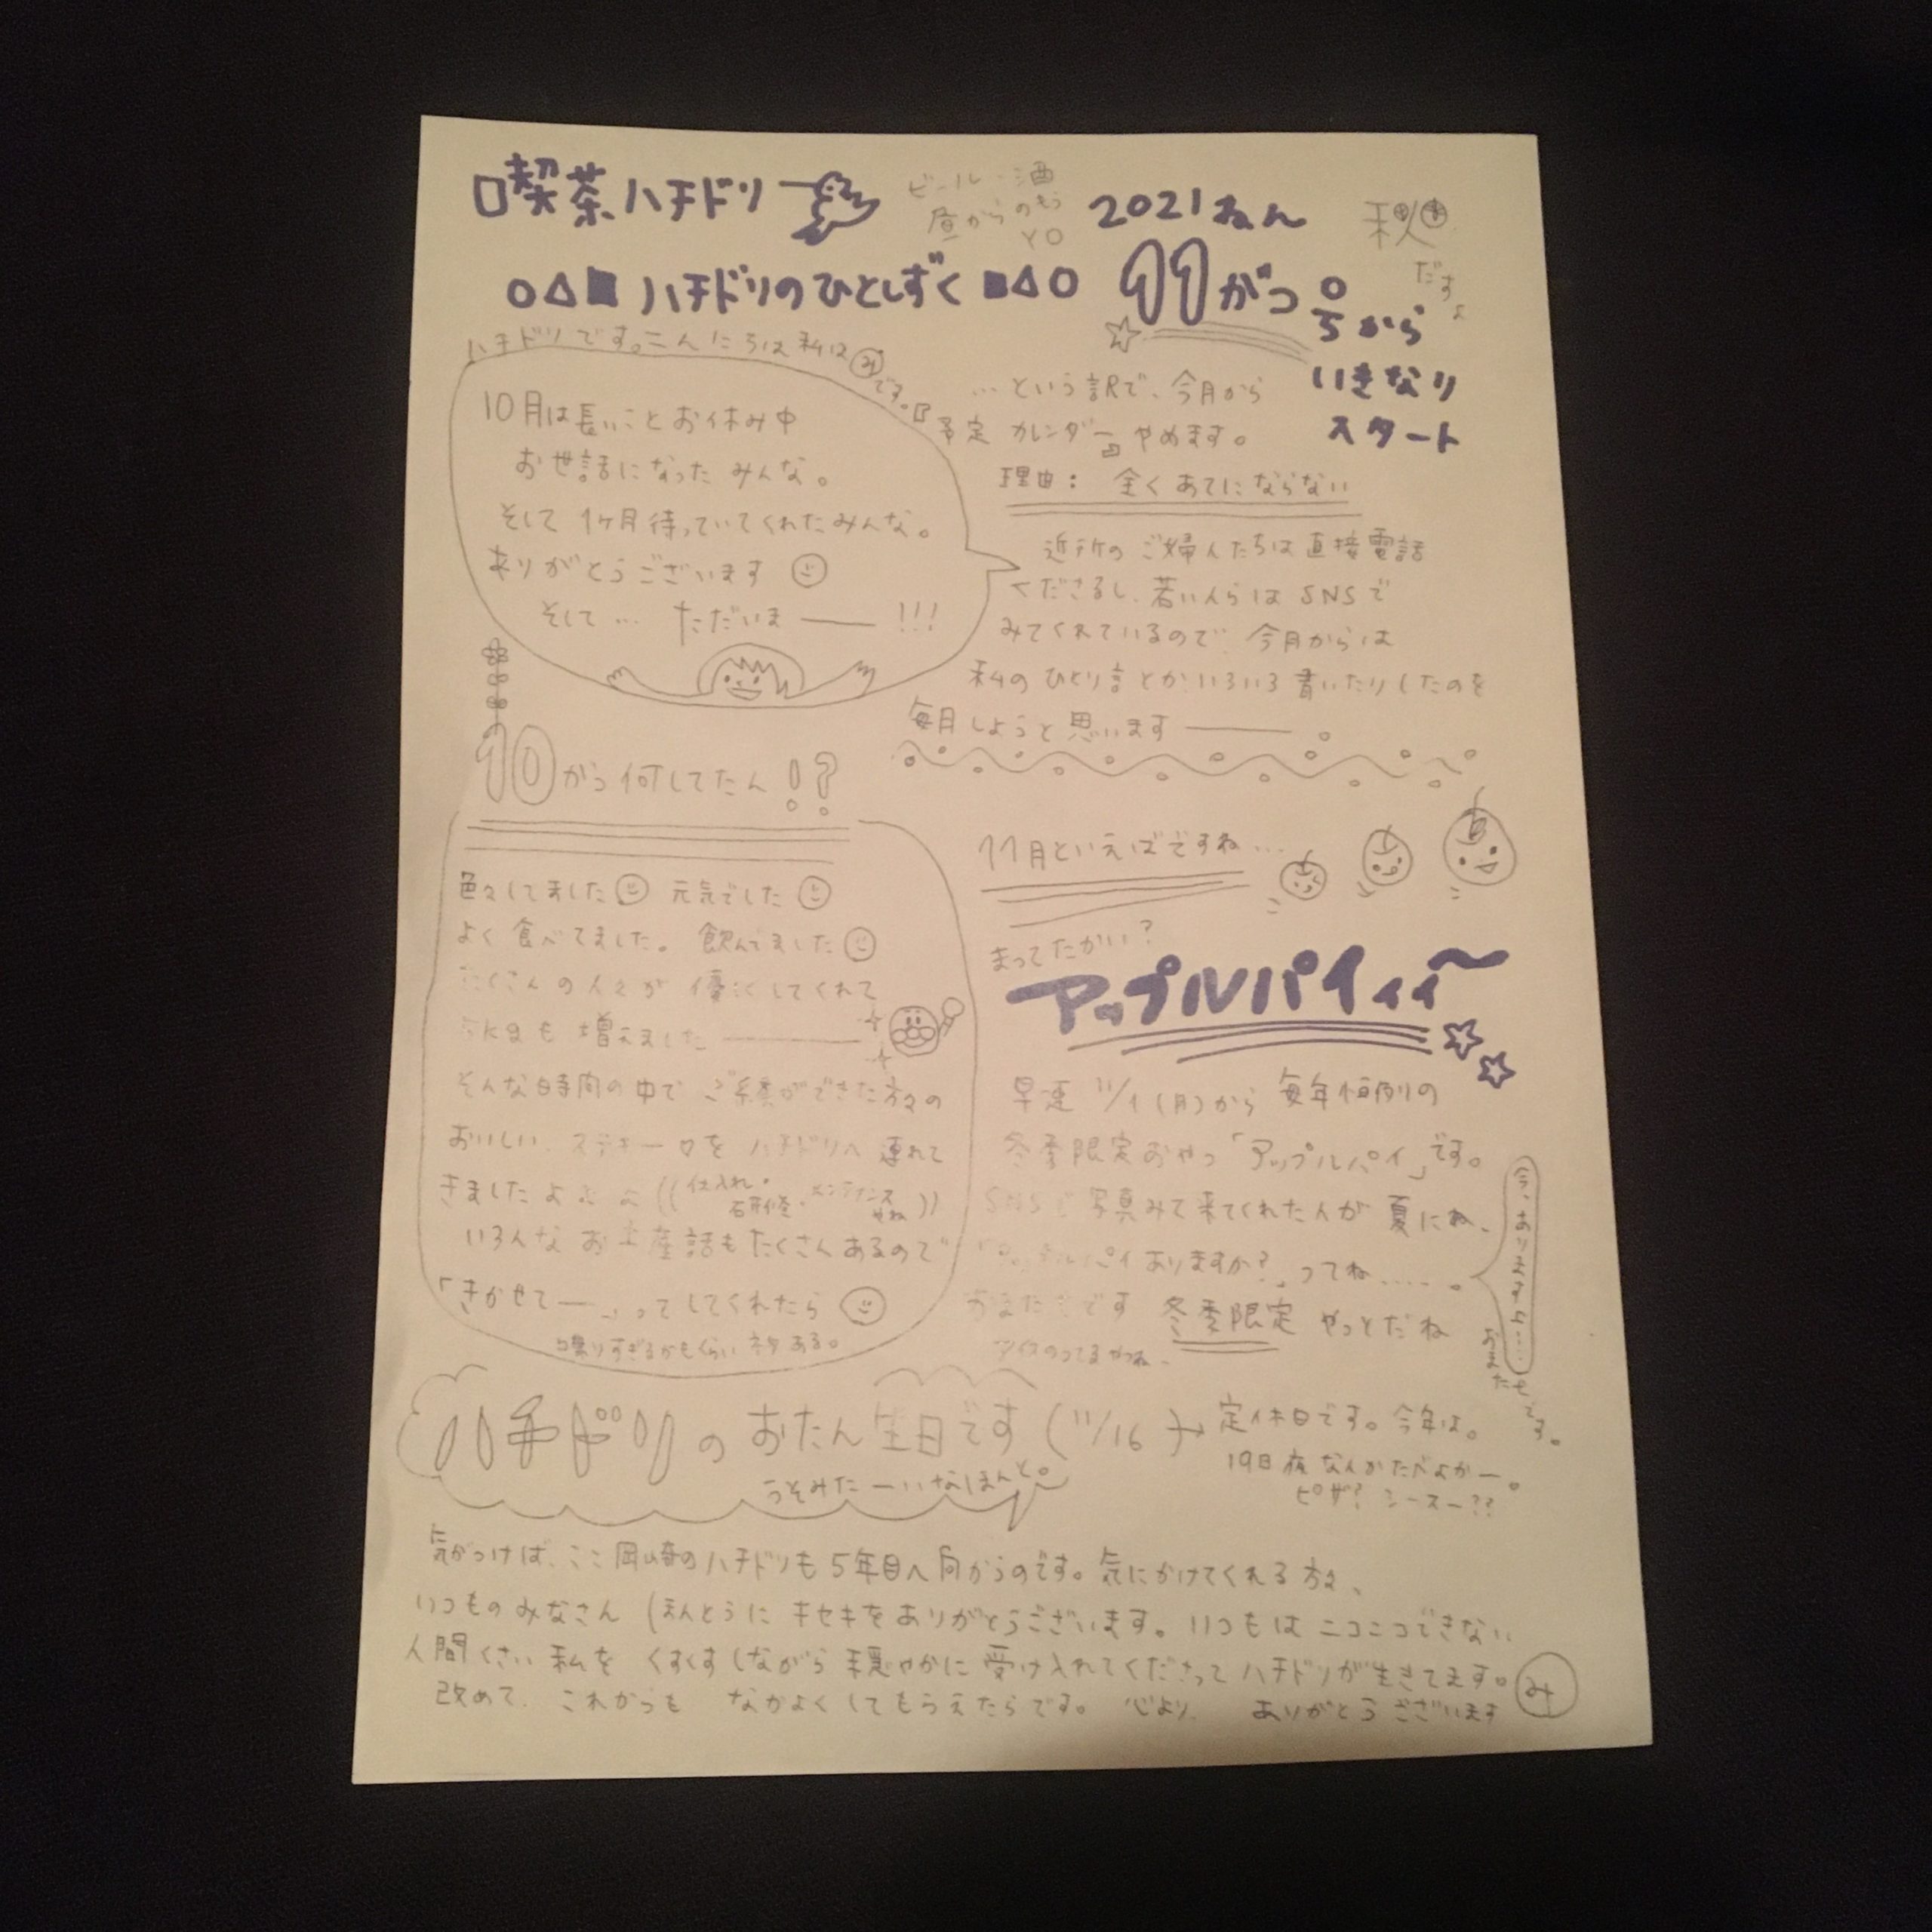 喫茶ハチドリ
ビール・酒
昼からのもう
YO
2021ねん
秋
だすよ
○△■ ハチドリのひとしずく ■△○
11がつ
5から
いきなり
スタート
ハチドリです。こんにちは私はみです。
10月は長いことお休み中
お世話になった みんな。
そして 1ヶ月待っていてくれたみんな。
ありがとうございます
そして… ただいま ー !!!
…という訳で、今月から
『予定 カレンダー』やめます。
理由: 全くあてにならない
近所のご婦人たちは直接電話
くださるし、若い人らはSNSで
みてくれているので、今月からは
私のひとり言とかいろいろ書いたりしたのを
毎月しようと思います ー。
10がつ何してたん!?
色々してました 元気でした
よく食べてました。 飲んでました
たくさんの人々が 優しくしてくれて
5kgも 増えました ー
そんな時間の中で ご縁ができた方々の
おいしい、ステキー♡を ハチドリへ 連れて
きましたよ ((仕入れ・
研修・メンテナンス
やね))
いろんな お土産話もたくさんあるので
「きかせてー」ってしてくれたら
喋りすぎるかもくらい ネタある。
11月といえばですね…
まってたかい?
アップルパイィィ〜
早速 11/1(月)から 毎年恒例の
冬季限定おやつ「アップルパイ」です。
SNSで写真みて来てくれた人が 夏にね、
「アップルパイありますか?」ってね……。
今、ありますよ…。
おまたせです。
おまたせです 冬季限定 やっとだね
アイスのってるやつね、
ハチドリの おたん生日です (11/16)→ 定休日です。今年は。
うそみたーいなほんと。
19日夜なんかたべよかー。
ピザ? シースー??
気がつけば、ここ岡崎のハチドリも5年目へ向かうのです。気にかけてくれる方々、
いつものみなさん ほんとうに キセキをありがとうございます。いつもはニコニコできない
人間くさい私を くすくすしながら穏やかに受け入れてくださって ハチドリが生きてます。
改めて、これからも なかよくしてもらえたらです。 心より、 ありがとうございます
み